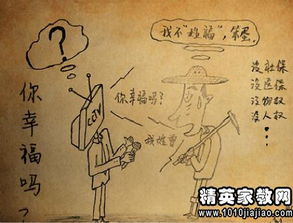 ?
我不“姓福”,笨蛋.
没社保
没医保
没物权
没人权
!
CCTV
你幸福吗?
我姓曾
你幸福吗?
精英家教网
www.1010jiajiao.com